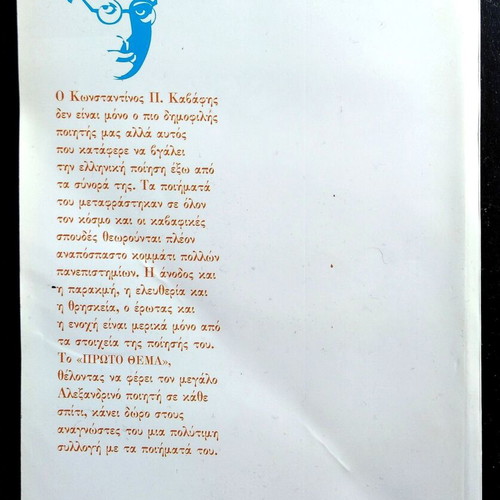 Ο Κωνσταντίνος Π. Καβάφης
δεν είναι μόνο ο πιο δημοφιλής
ποιητής μας αλλά αυτός
που κατάφερε να βγάλει
την ελληνική ποίηση έξω από
τα σύνορά της. Τα ποιήματά
του μεταφράστηκαν σε όλον
τον κόσμο και οι καβαφικές
σπουδές θεωρούνται πλέον
αναπόσπαστο κομμάτι πολλών
πανεπιστημίων. Η άνοδος και
η παρακμή, η ελευθερία και
η θρησκεία, ο έρωτας και
η ενοχή είναι μερικά μόνο από
τα στοιχεία της ποίησής του.
Το «ΠΡΩΤΟ ΘΕΜΑ»,
θέλοντας να φέρει τον μεγάλο
Αλεξανδρινό ποιητή σε κάθε
σπίτι, κάνει δώρο στους
αναγνώστες του μια πολύτιμη
συλλογή με τα ποιήματά του.